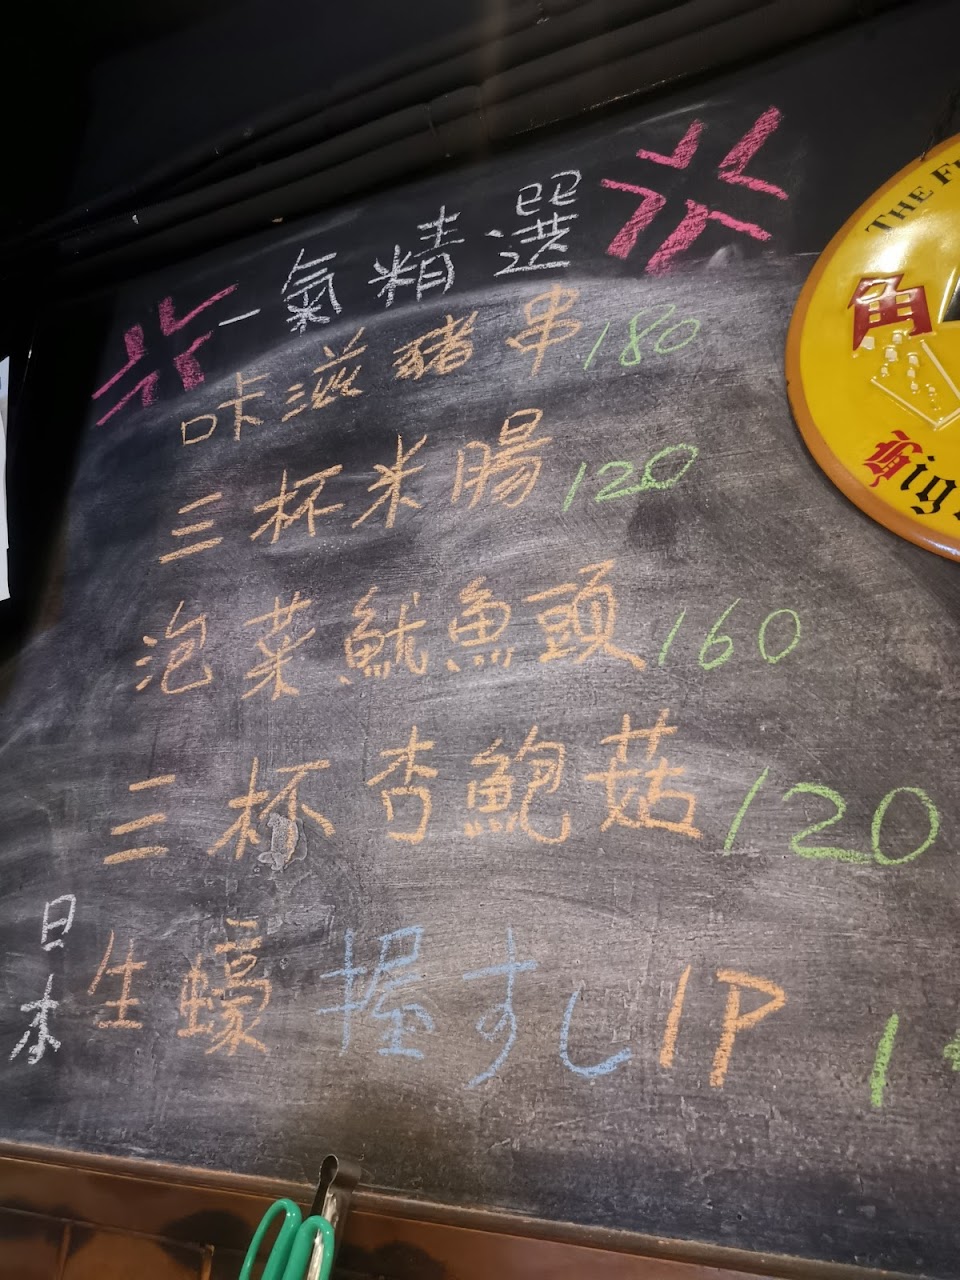 一氣精選
咔滋豬串 180
三杯米腸 120
泡菜魷魚頭 160
三杯杏鮑菇 120
日本生蠔握すし 1P
THE
角